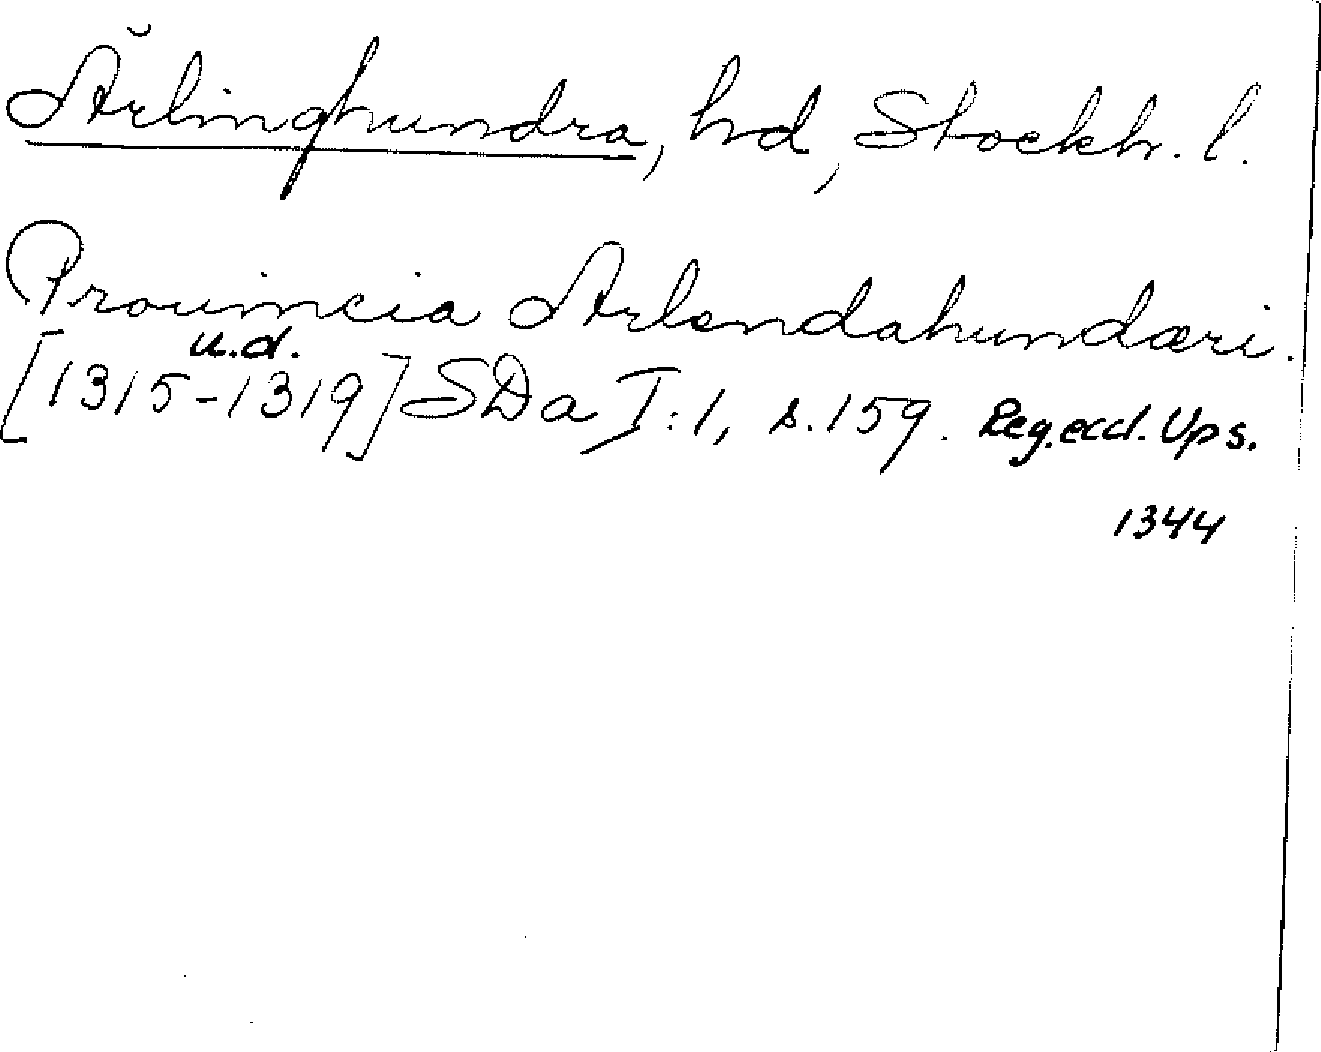 Ärlinghundra, hd, Stockh. l.
Prouincia Arlendahundæri.
u.d.
[1315-1319] SDa I:1, s. 159. Reg. eccl. Ups.
1344